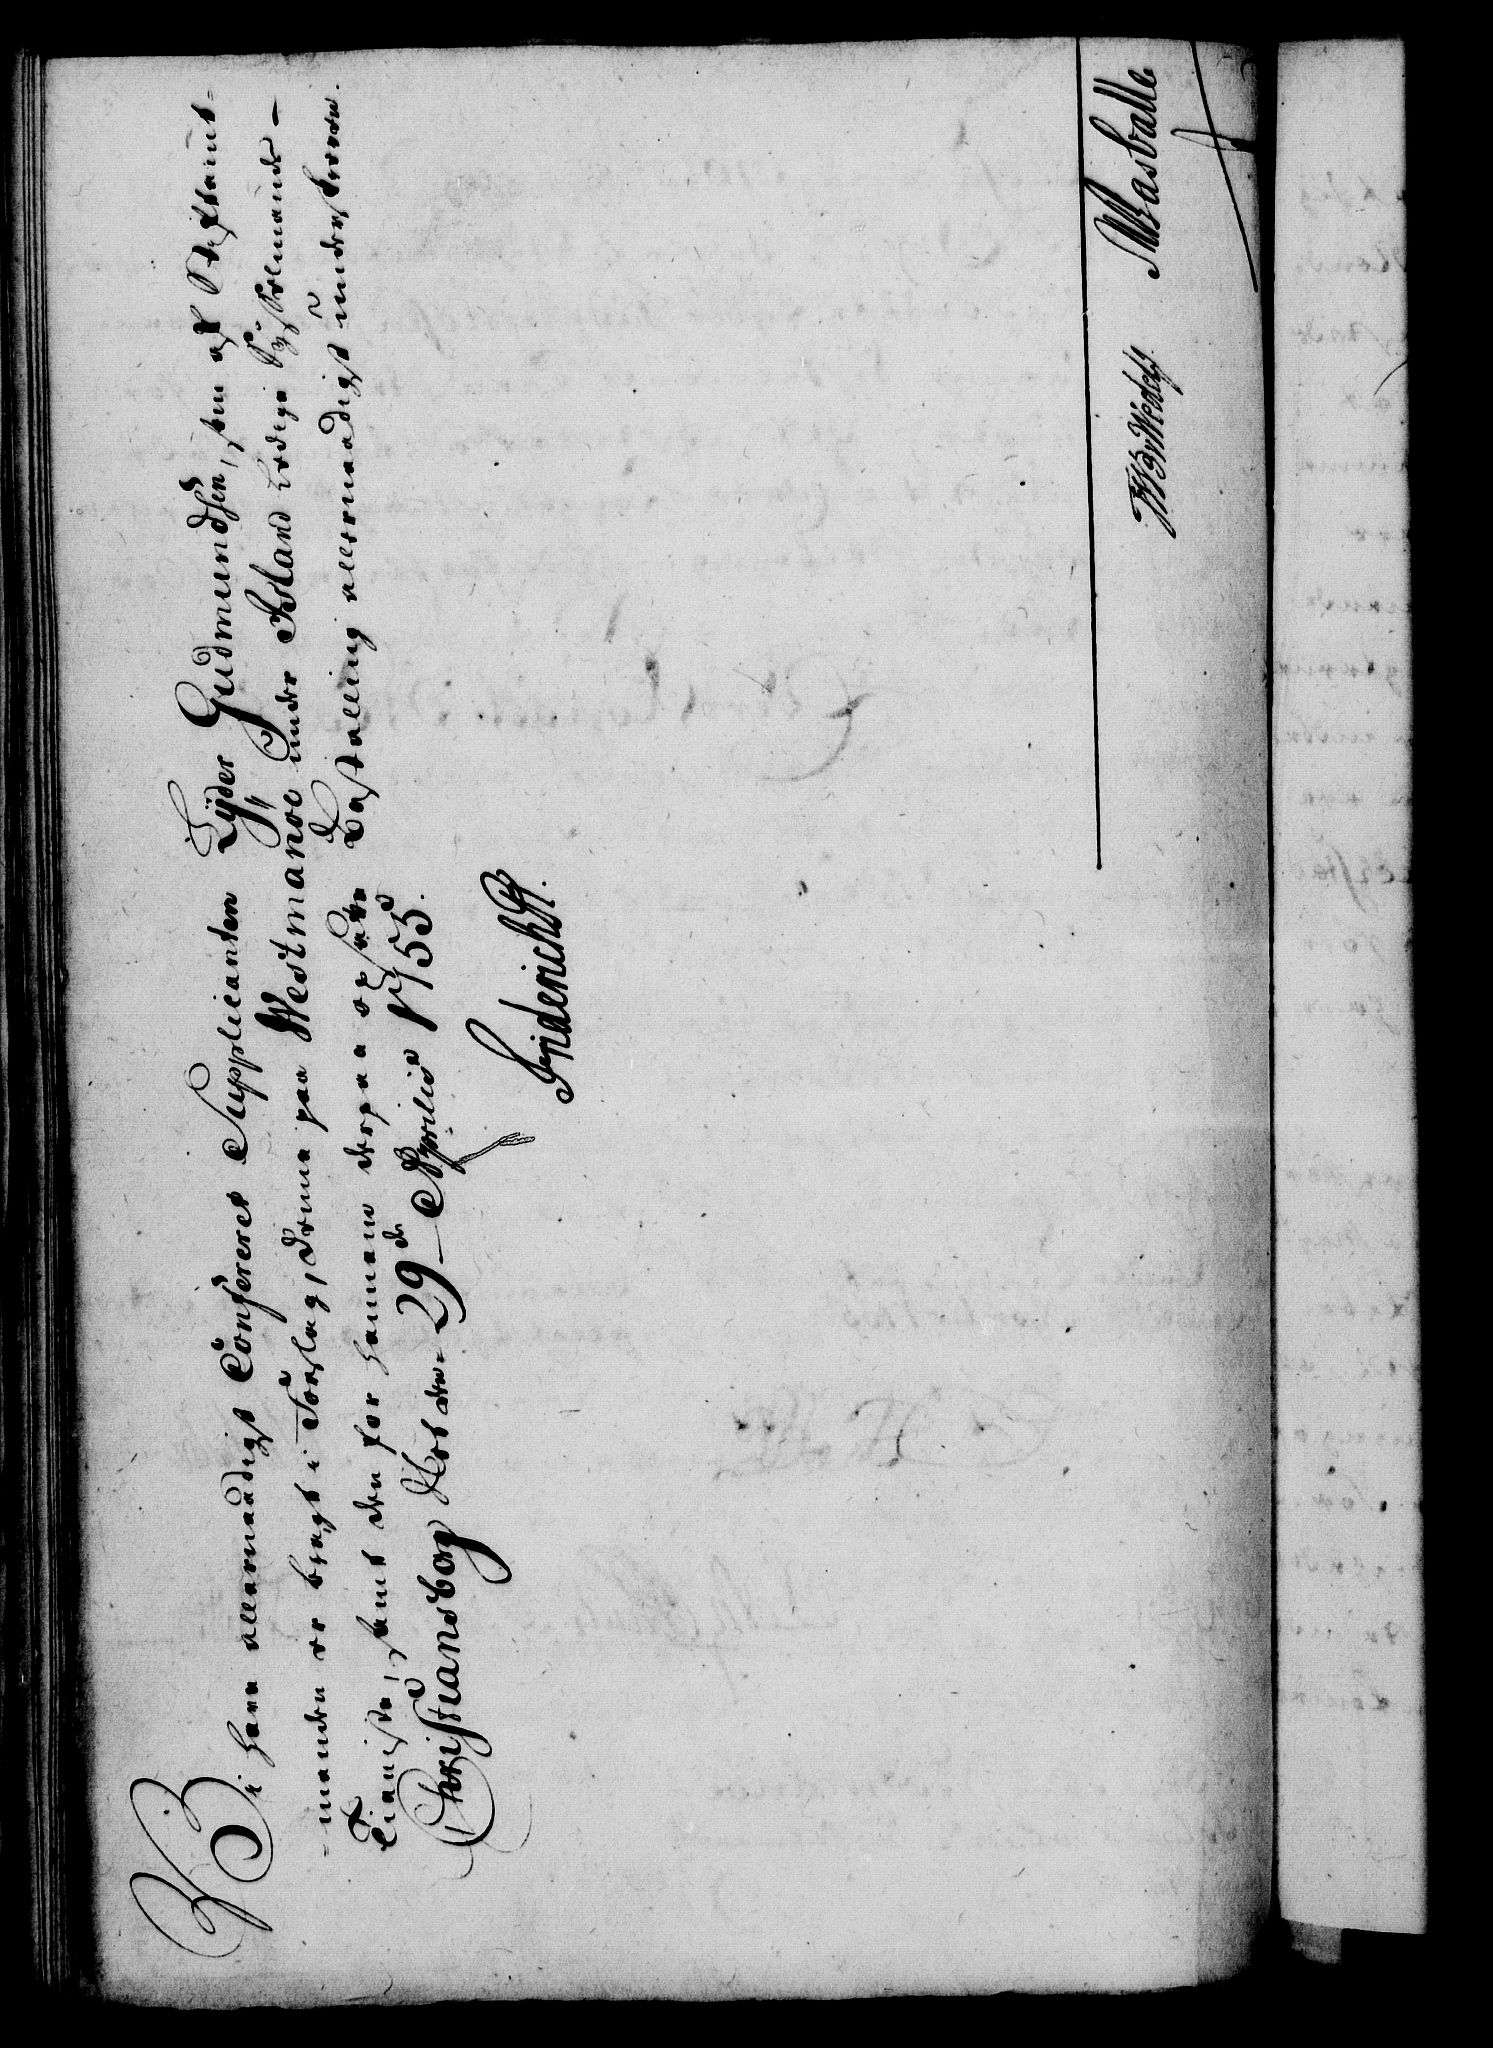 Vi have allernaadigst Confereret Supplicanten Eyder Gudmundsen, som af Stiftamt-
-manden er bragt i Forslag, denne paa Westmanöe under Island ledige Sysselmands-
Tieniste, samt den for hannem derpaa opsatte Bestalling allernaadigst underskreven.
Christiansborg Slot den 29de Aprilis 1755.
Friderich R.